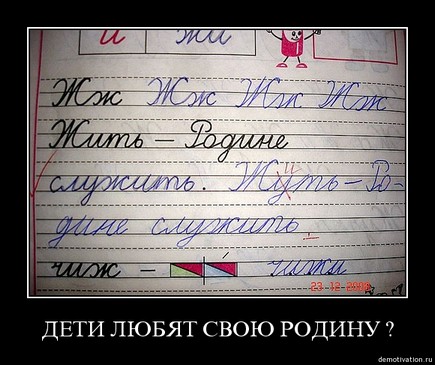 и жи
Жж Жж Жж Жж
Жить – Родине
служить. Жуть – Ро-
и
дине служить
чиж – чижи
23 12 2008
ДЕТИ ЛЮБЯТ СВОЮ РОДИНУ ?
demotivation.ru